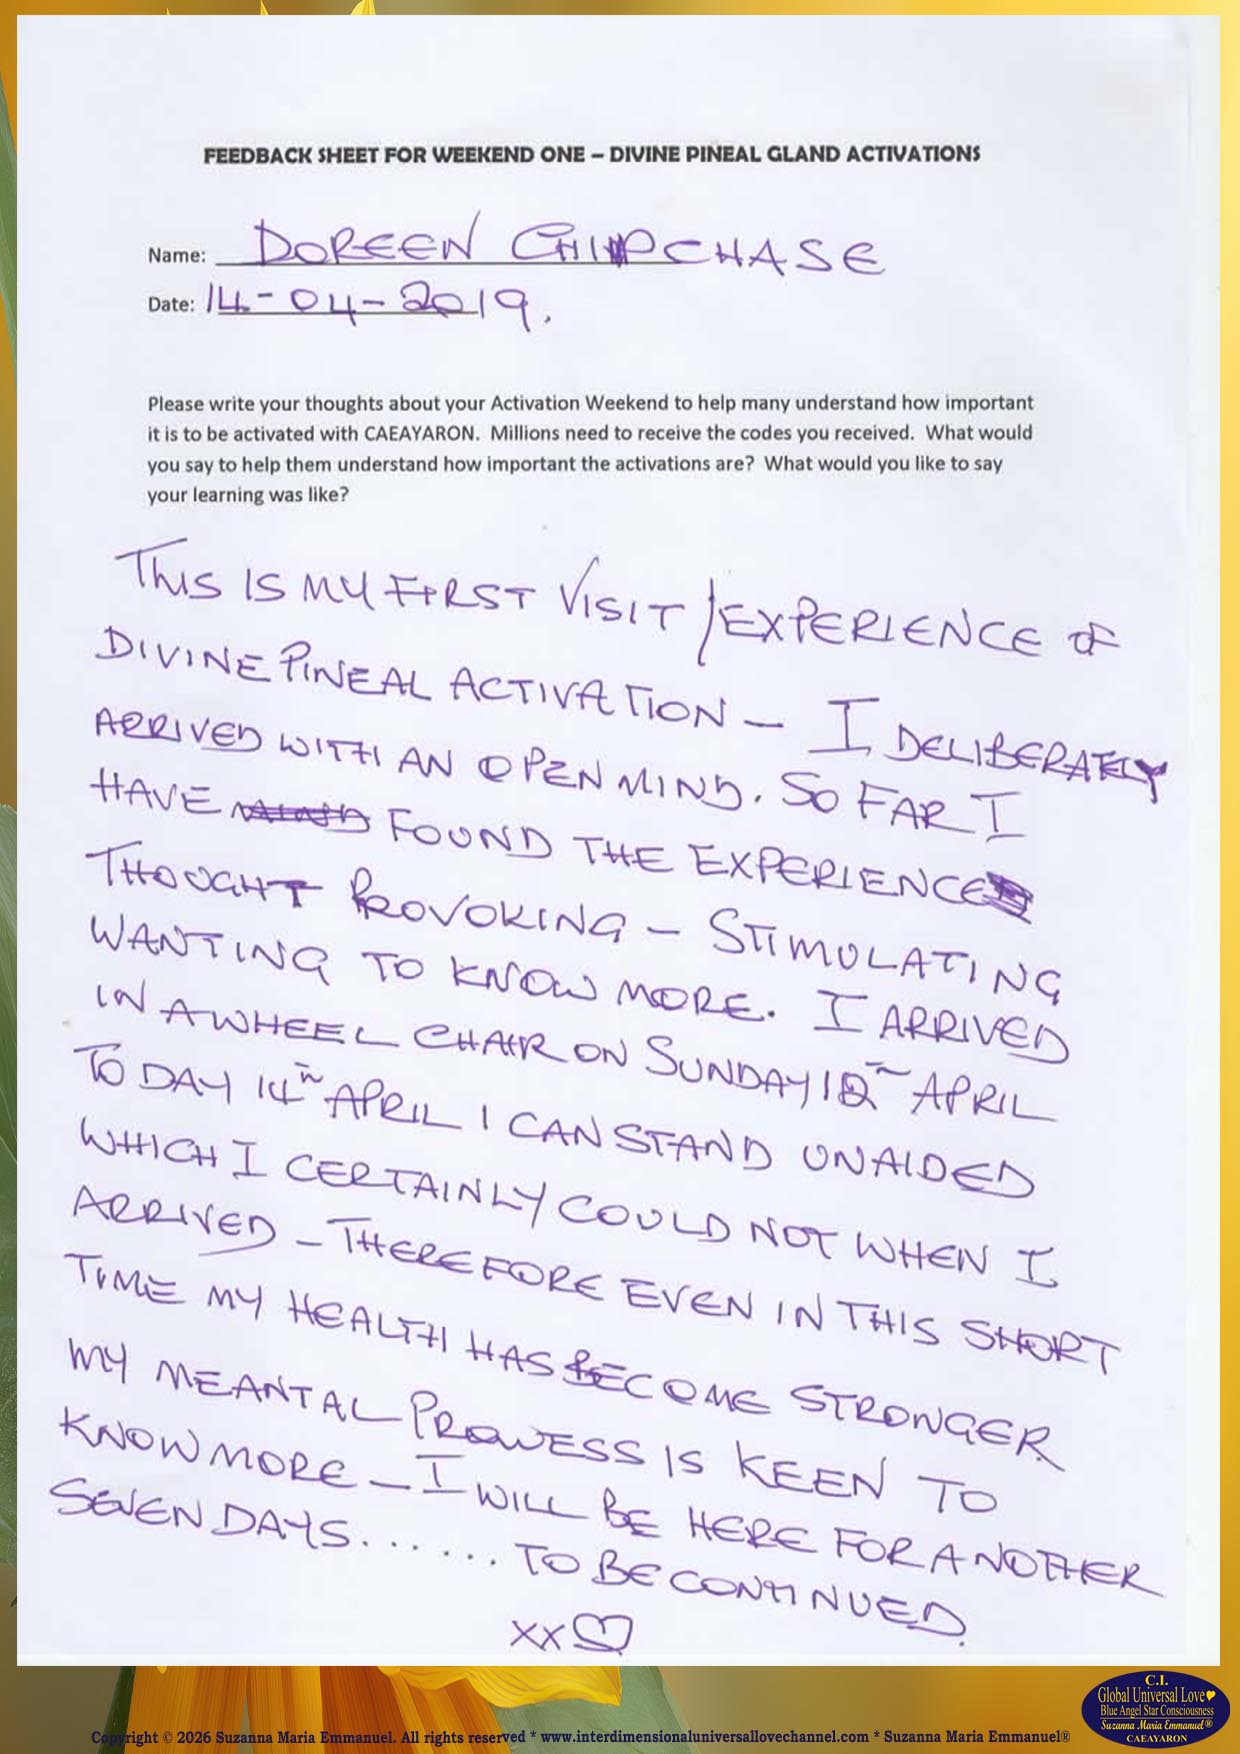 FEEDBACK SHEET FOR WEEKEND ONE – DIVINE PINEAL GLAND ACTIVATIONS
Name: DOREEN CHIPCHASE
Date: 14-04-2019.
Please write your thoughts about your Activation Weekend to help many understand how important
it is to be activated with CAEAYARON. Millions need to receive the codes you received. What would
you say to help them understand how important the activations are? What would you like to say
your learning was like?
THIS IS MY FIRST VISIT / EXPERIENCE OF
DIVINE PINEAL ACTIVATION – I DELIBERATELY
ARRIVED WITH AN OPEN MIND. SO FAR I
HAVE FOUND THE EXPERIENCE
THOUGHT PROVOKING – STIMULATING
WANTING TO KNOW MORE. I ARRIVED
IN A WHEEL CHAIR ON SUNDAY 12TH APRIL
TO DAY 14TH APRIL I CAN STAND UNAIDED
WHICH I CERTAINLY COULD NOT WHEN I
ARRIVED – THEREFORE EVEN IN THIS SHORT
TIME MY HEALTH HAS BECOME STRONGER
MY MEANTAL PROWESS IS KEEN TO
KNOW MORE – I WILL BE HERE FOR ANOTHER
SEVEN DAYS....... TO BE CONTINUED.
XX♡
C.I.
Global Universal Love♥
Blue Angel Star Consciousness
Suzanna Maria Emmanuel®
CAEAYARON
Copyright © 2026 Suzanna Maria Emmanuel. All rights reserved * www.interdimensionaluniversallovechannel.com * Suzanna Maria Emmanuel®